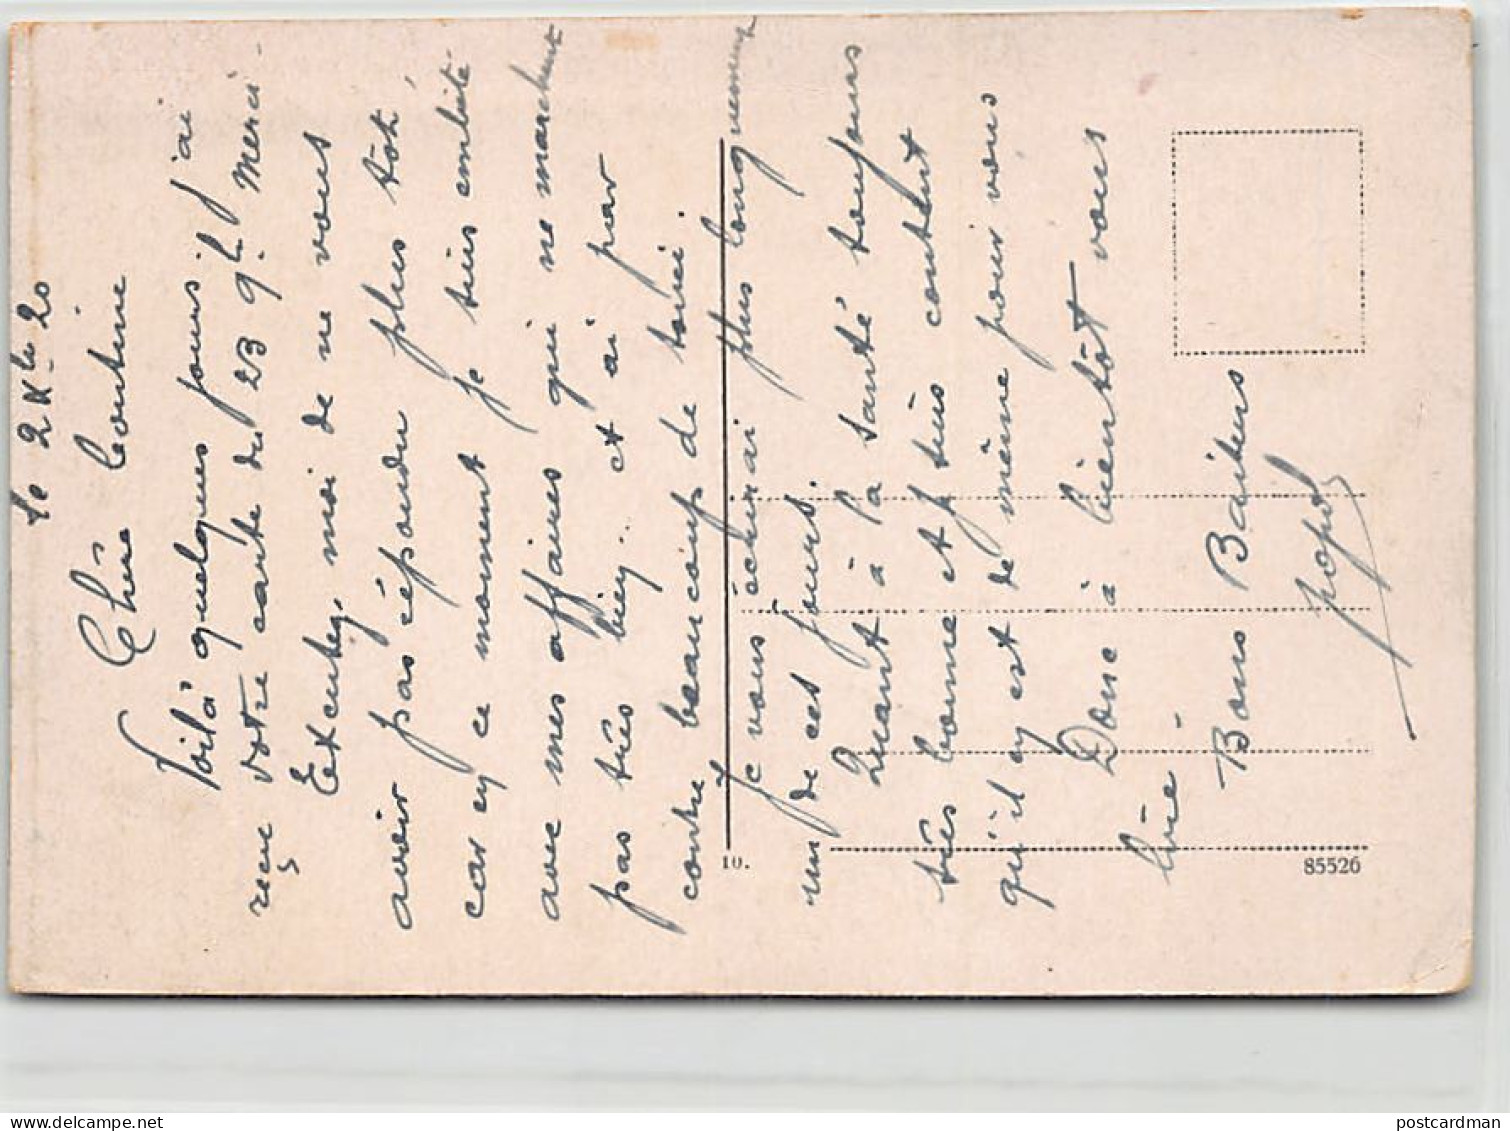 le 2 Xbre 20
Chère Contine
Voilà quelques jours. j'ai
reçu votre carte du 23 9bre. Merci -
Excusez, moi de ne vous
avoir pas répondu plus tôt
car en ce moment je suis embêté
avec mes affaires qui ne marchent
pas très bien... et ai par
contre beaucoup de souci.
Je vous écrirai plus longuement
un de ces jours.
Quant à la santé toujours
très bonne et suis content
qu'il en est de même pour vous
Donc à bientôt vous
lire -
Bons Baisers
10.
85526
postcardman